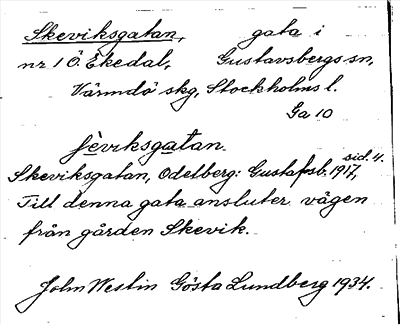 Skeviksgatan, gata i
nr 1 Ö. Ekedal, Gustavsbergs sn,
Värmdö skg, Stockholms l.
Ga 10
ʃèviksgatan.
sid. 4.
Skeviksgatan, Odelberg: Gustafsb. 1917,
Till denna gata ansluter vägen
från gården Skevik.
John Westin Gösta Lundberg 1934.